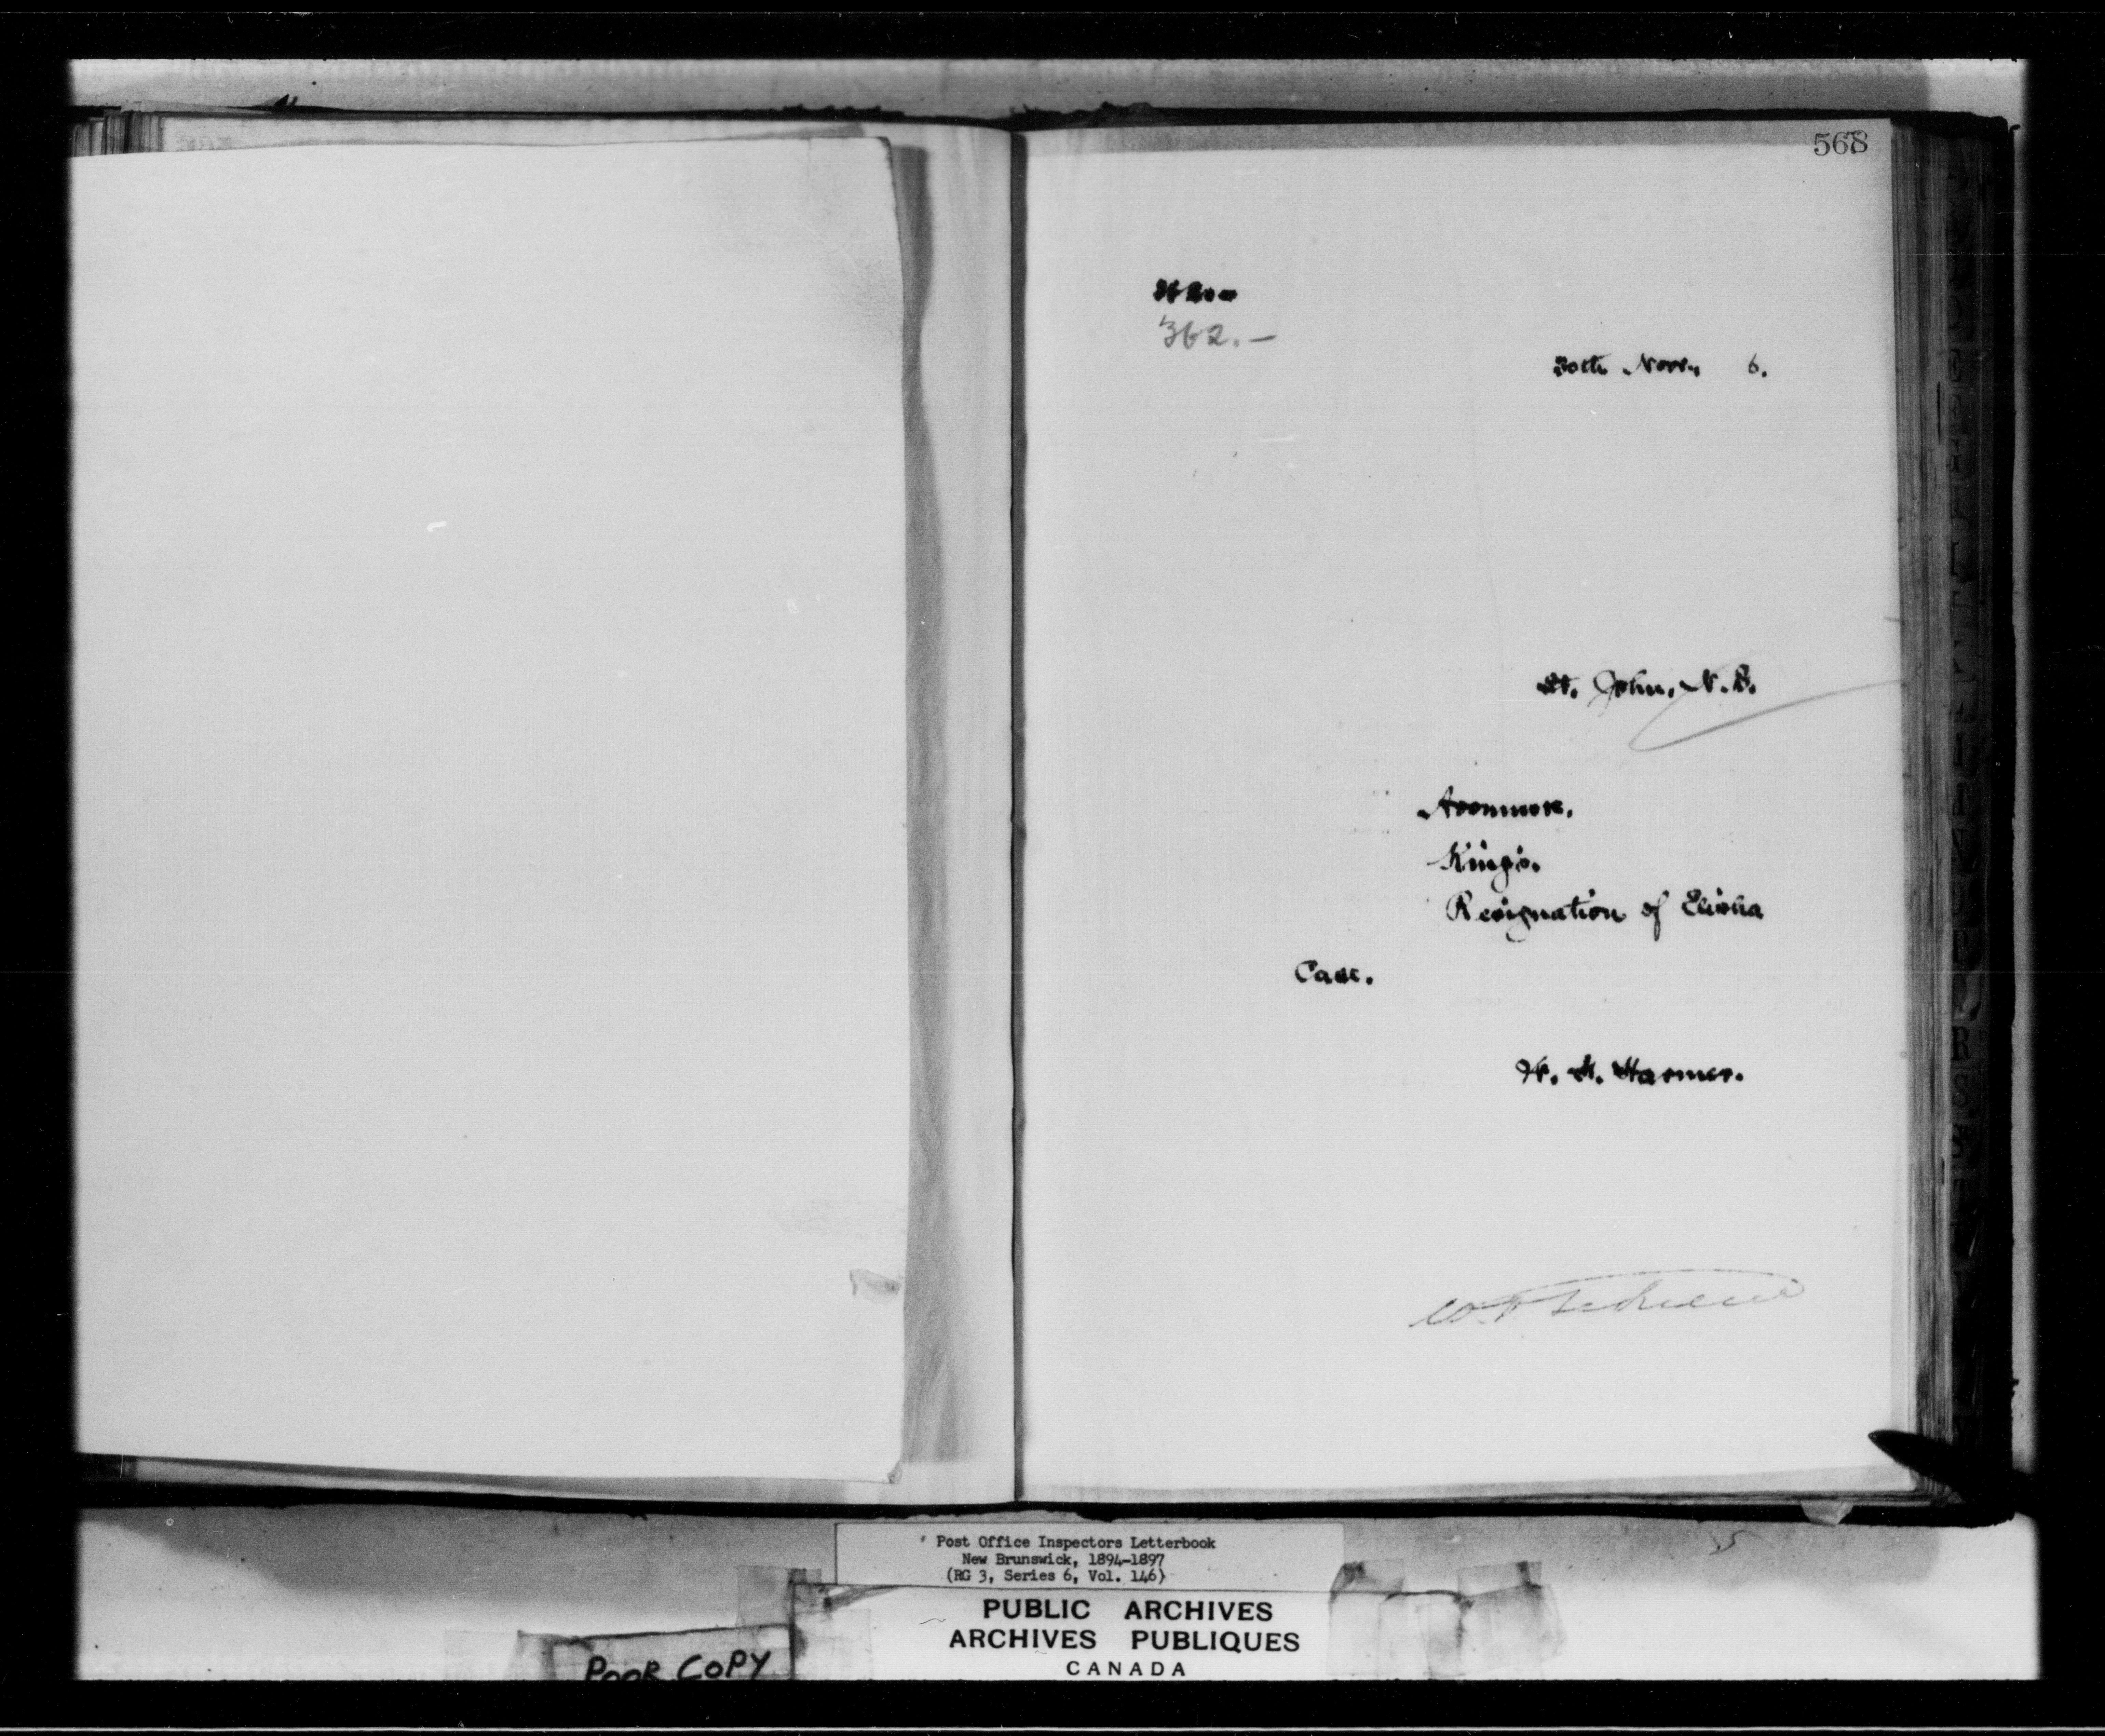 568
362.-
30th Novr. 6.
St. John, N.B.
Avonmore.
King's.
Resignation of Elisha
Case.
Post Office Inspectors Letterbook
New Brunswick, 1894-1897
(RG 3, Series 6, Vol. 146)
PUBLIC ARCHIVES
ARCHIVES PUBLIQUES
CANADA
POOR COPY